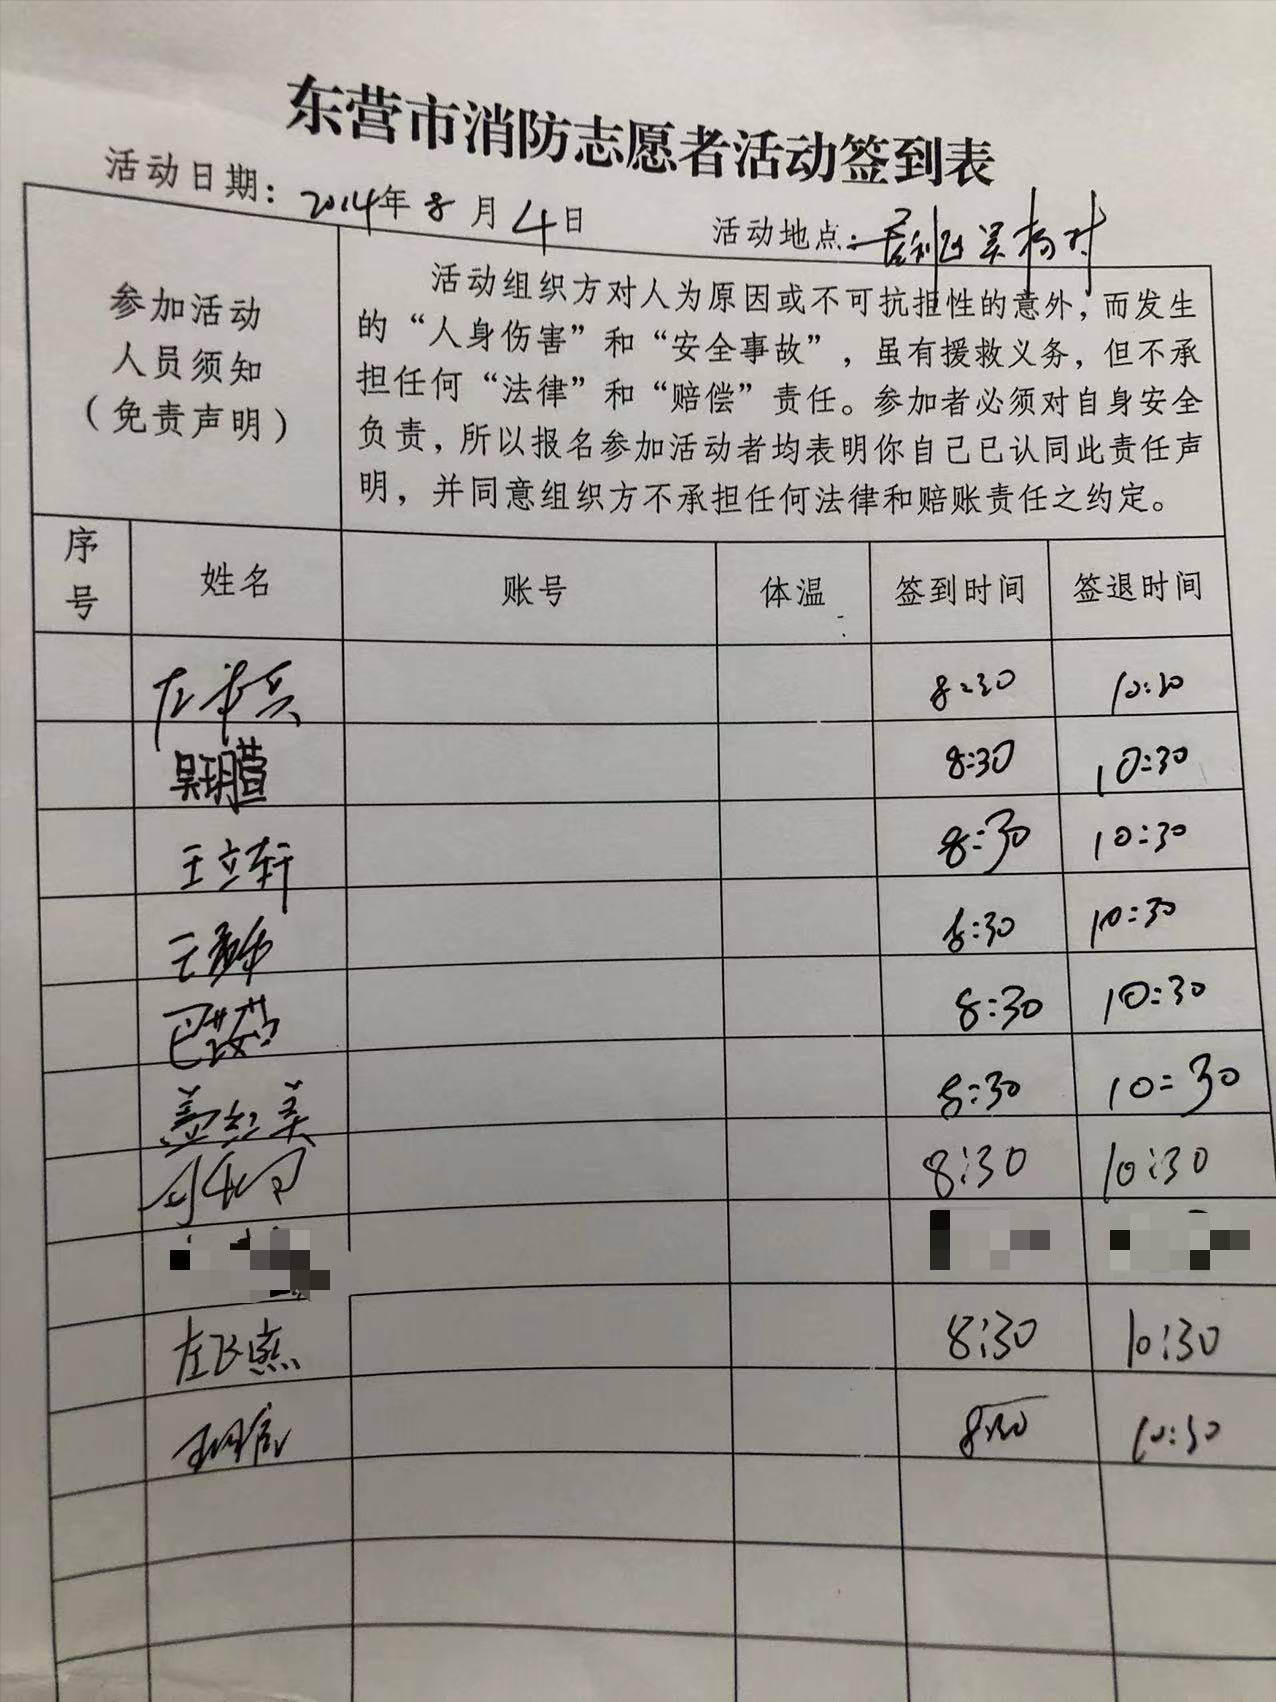 东营市消防志愿者活动签到表
活动日期：2014年8月4日 活动地点：
参加活动
人员须知
（免责声明）
活动组织方对人为原因或不可抗拒性的意外，而发生
的“人身伤害”和“安全事故”，虽有援救义务，但不承
担任何“法律”和“赔偿”责任。参加者必须对自身安全
负责，所以报名参加活动者均表明你自己已认同此责任声
明，并同意组织方不承担任何法律和赔账责任之约定。
序号 姓名 账号 体温 签到时间 签退时间
8:30 10:30
吴玥萱 8:30 10:30
王立轩 8:30 10:30
8:30 10:30
8:30 10:30
盖红美 8:30 10:30
8:30 10:30
左飞燕 8:30 10:30
8:30 10:30